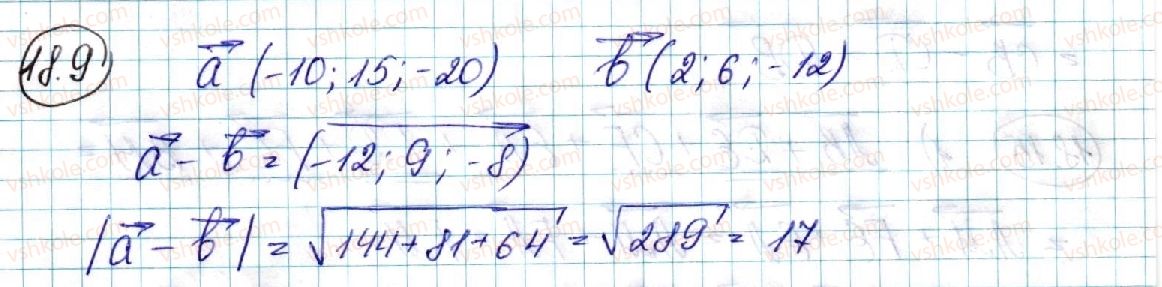 18.9
a⃗ (-10; 15; -20) b⃗ (2; 6; -12)
a⃗ - b⃗ = (-12; 9; -8)
|a⃗ - b⃗| = √144+81+64 = √289 = 17
vshkole.com